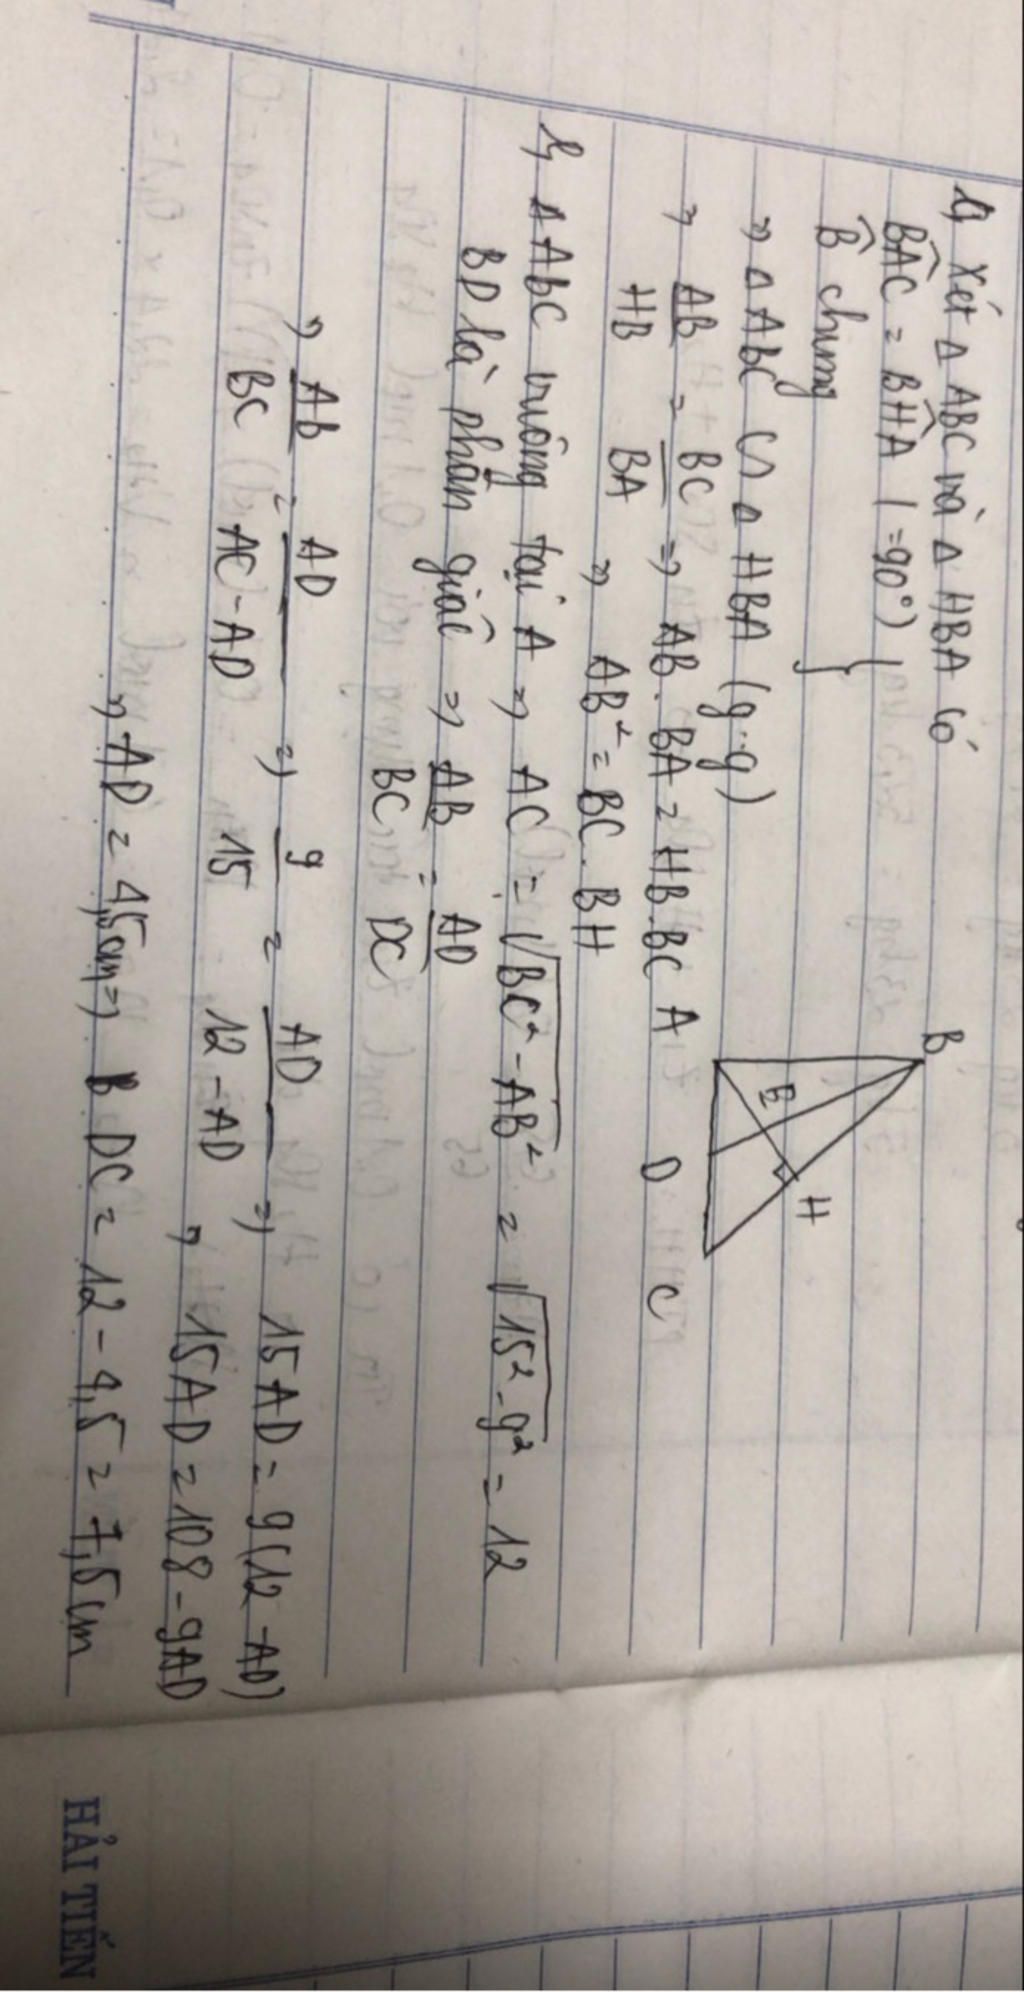 a, Xét Δ ABC và Δ HBA có
BAC = BHA (=90°)
B chung
=> Δ ABC ∽ Δ HBA (g.g)
=> AB/HB = BC/BA => AB. BA = HB.BC
=> AB² = BC. BH
B
E
H
A
D
C
b, Δ ABC vuông tại A => AC = √BC² - AB² = √15² - 9² = 12
BD là phân giác => AB/BC = AD/DC
=> AB/BC = AD/AC - AD => 9/15 = AD/12 - AD => 15AD = 9(12 - AD)
=> 15AD = 108 - 9AD
=> AD = 4,5cm => DC = 12 - 4,5 = 7,5cm
HẢI TIẾN